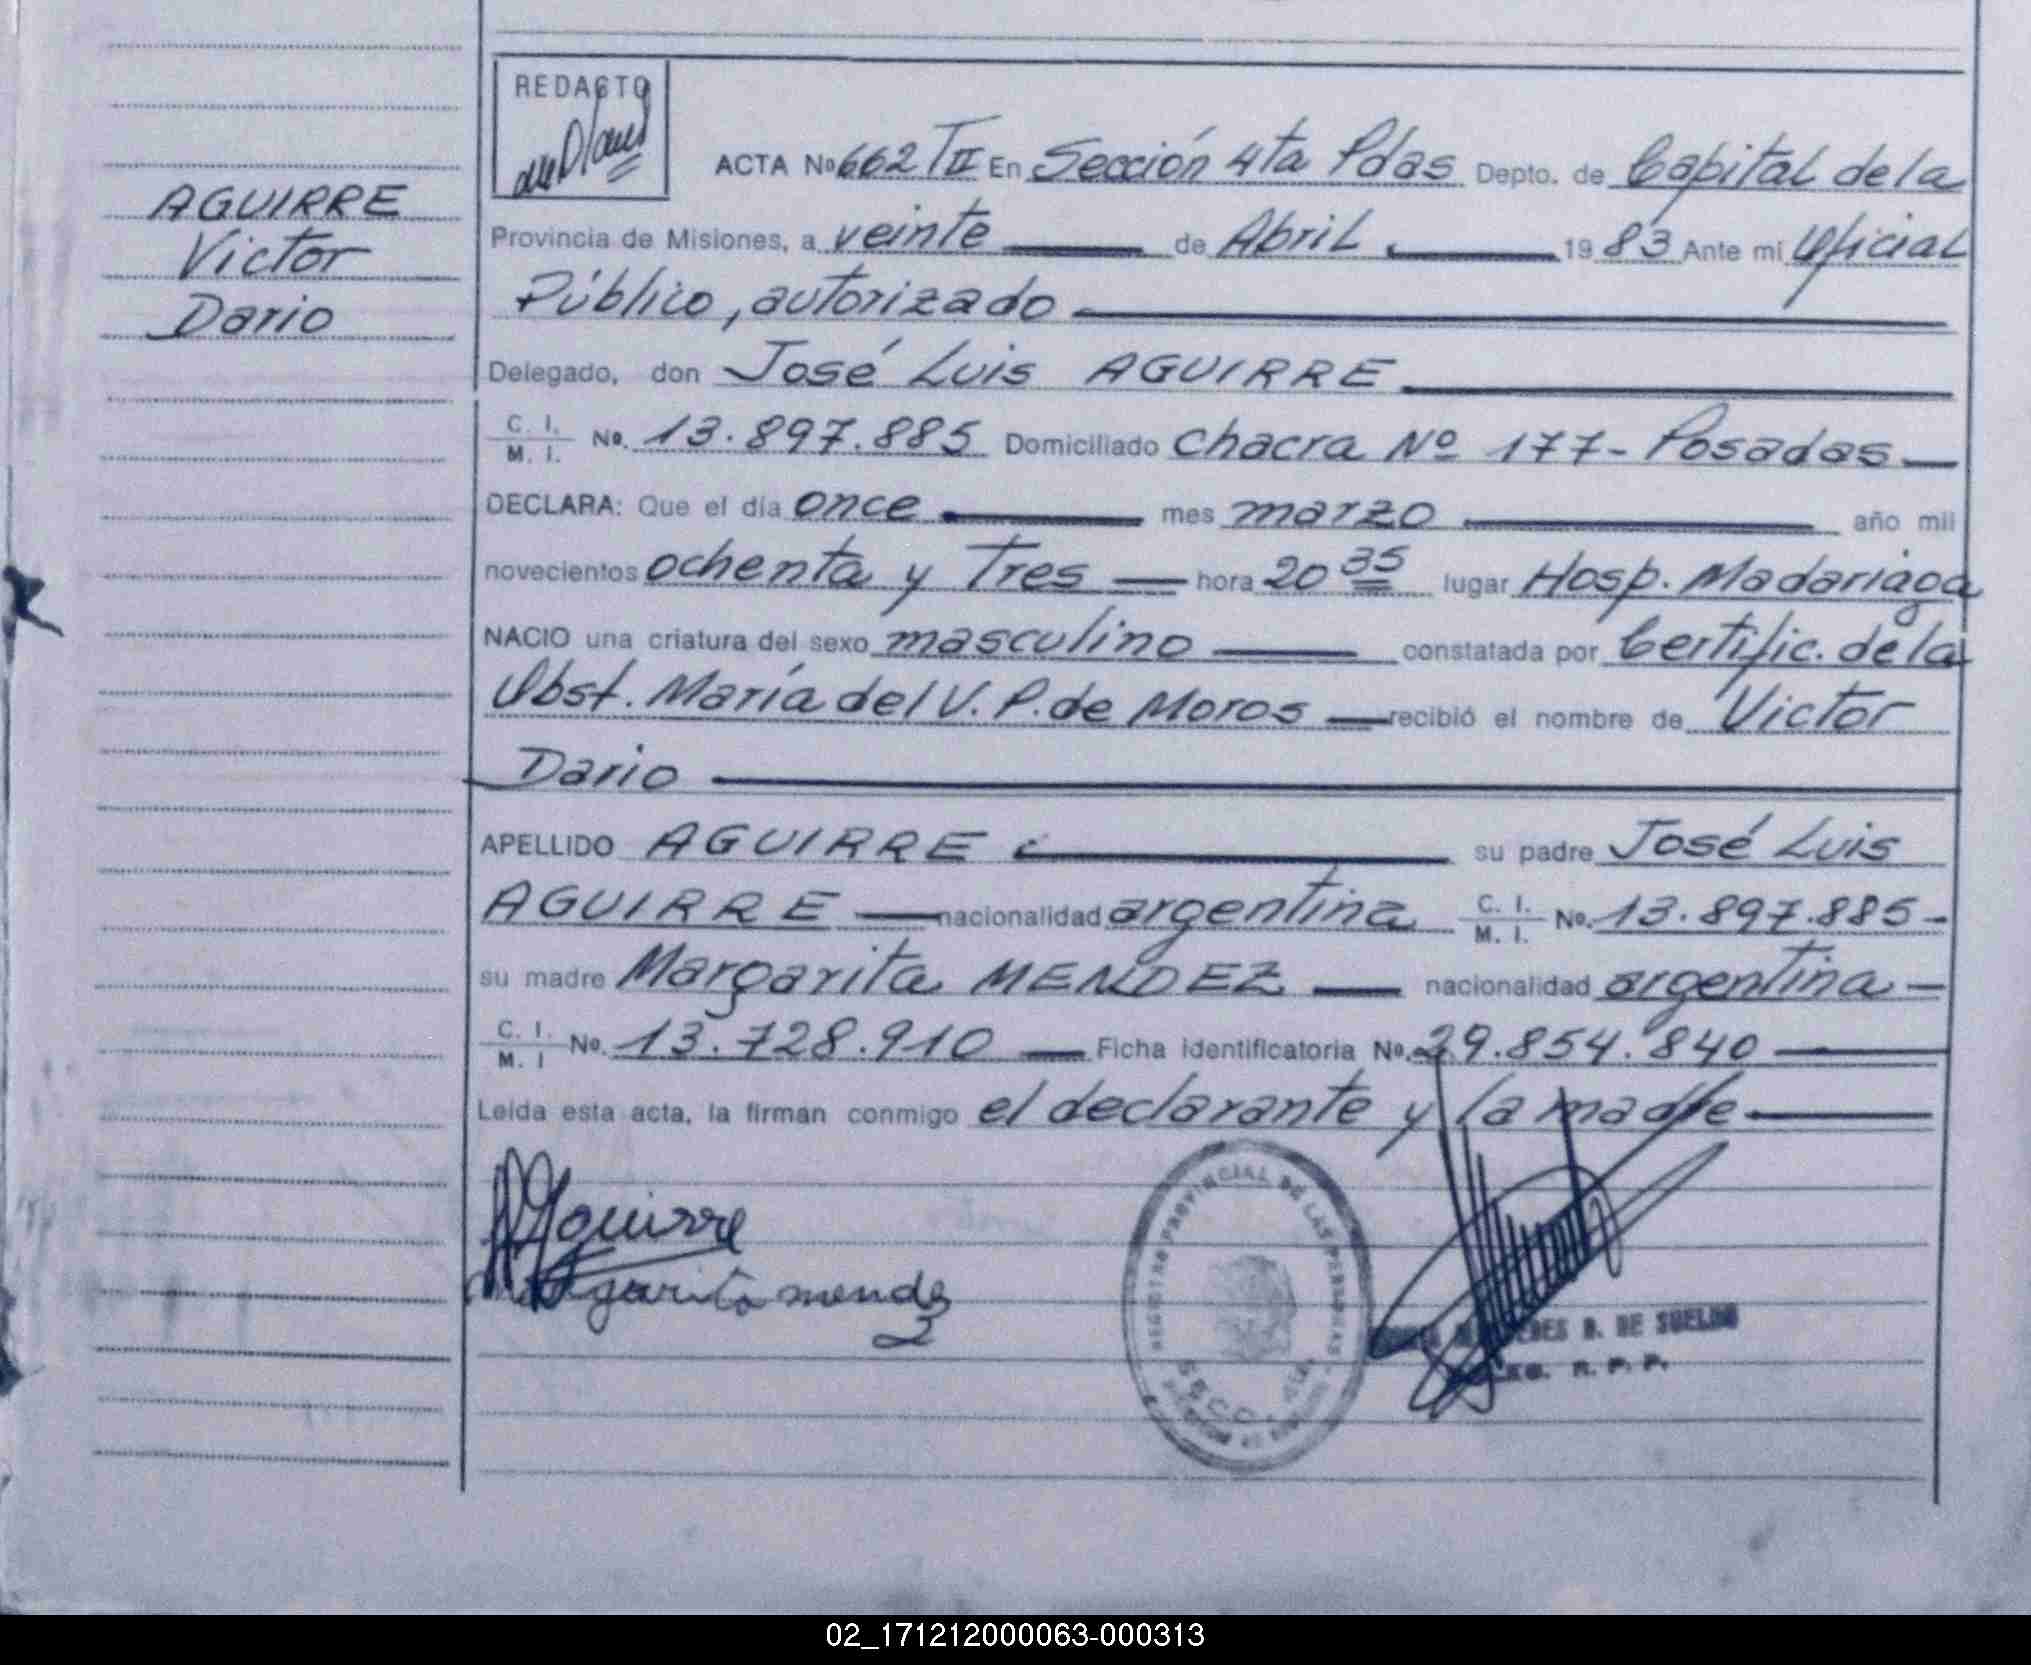 REDACTO
ACTA Nº 662 TII En Sección 4ta Pdas Depto. de Capital de la
AGUIRRE
Victor
Dario
Provincia de Misiones, a veinte de Abril 19 83 Ante mi Oficial
Público, autorizado
Delegado, don José Luis AGUIRRE
C. I. M. I. Nº. 13.897.885 Domiciliado Chacra Nº 177 - Posadas
DECLARA: Que el día once mes marzo año mil
novecientos ochenta y Tres hora 20 35 lugar Hosp. Madariaga
NACIO una criatura del sexo masculino constatada por Certific. de la
Obst. María del V. P. de Moros recibió el nombre de Victor
Dario
APELLIDO AGUIRRE su padre José Luis
AGUIRRE nacionalidad argentina C. I. M. I. Nº. 13.897.885 -
su madre Margarita MENDEZ nacionalidad argentina -
C. I. M. I Nº. 13.728.910 Ficha identificatoria Nº. 29.854.840
Leida esta acta, la firman conmigo el declarante y la madre
Aguirre
Margarita mendez
REGISTRO PROVINCIAL DE LAS PERSONAS
SECC. 4ta.
B. DE SUELDO
R. P. P.
02_171212000063-000313